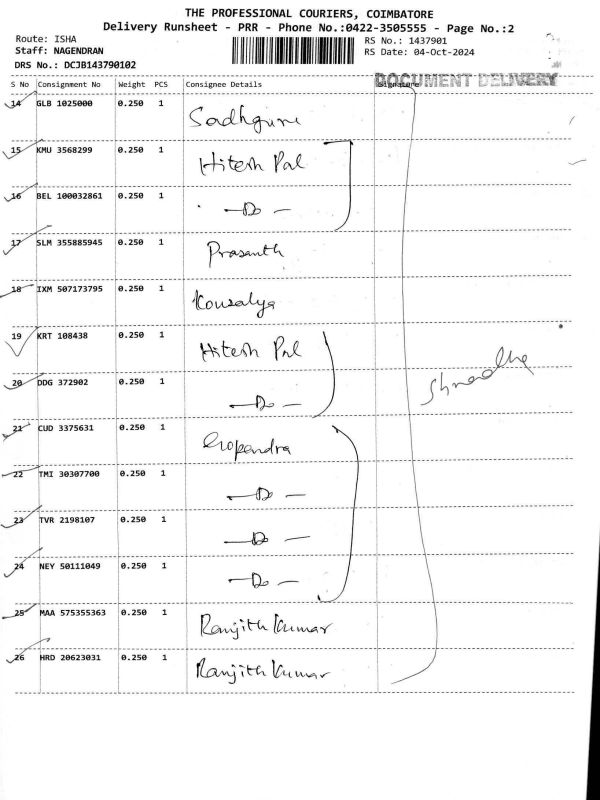 THE PROFESSIONAL COURIERS, COIMBATORE
Delivery Runsheet - PRR - Phone No.:0422-3505555 - Page No.:2
Route: ISHA
RS No.: 1437901
Staff: NAGENDRAN
RS Date: 04-Oct-2024
DRS No.: DCJB143790102
DOCUMENT DELIVERY
S No Consignment No Weight PCS Consignee Details Signature
14 GLB 1025000 0.250 1 Sadhguru
15 KMU 3568299 0.250 1 Hitesh Pal
16 BEL 100032861 0.250 1 - Do -
17 SLM 355885945 0.250 1 Prasanth
18 IXM 507173795 0.250 1 Kousalya
19 KRT 108438 0.250 1 Hitesh Pal
Shradha
20 DDG 372902 0.250 1 - Do -
21 CUD 3375631 0.250 1 Gopendra
22 TMI 30307700 0.250 1 - Do -
23 TVR 2198107 0.250 1 - Do -
24 NEY 50111049 0.250 1 - Do -
25 MAA 575355363 0.250 1 Ranjith Kumar
26 HRD 20623031 0.250 1 Ranjith Kumar